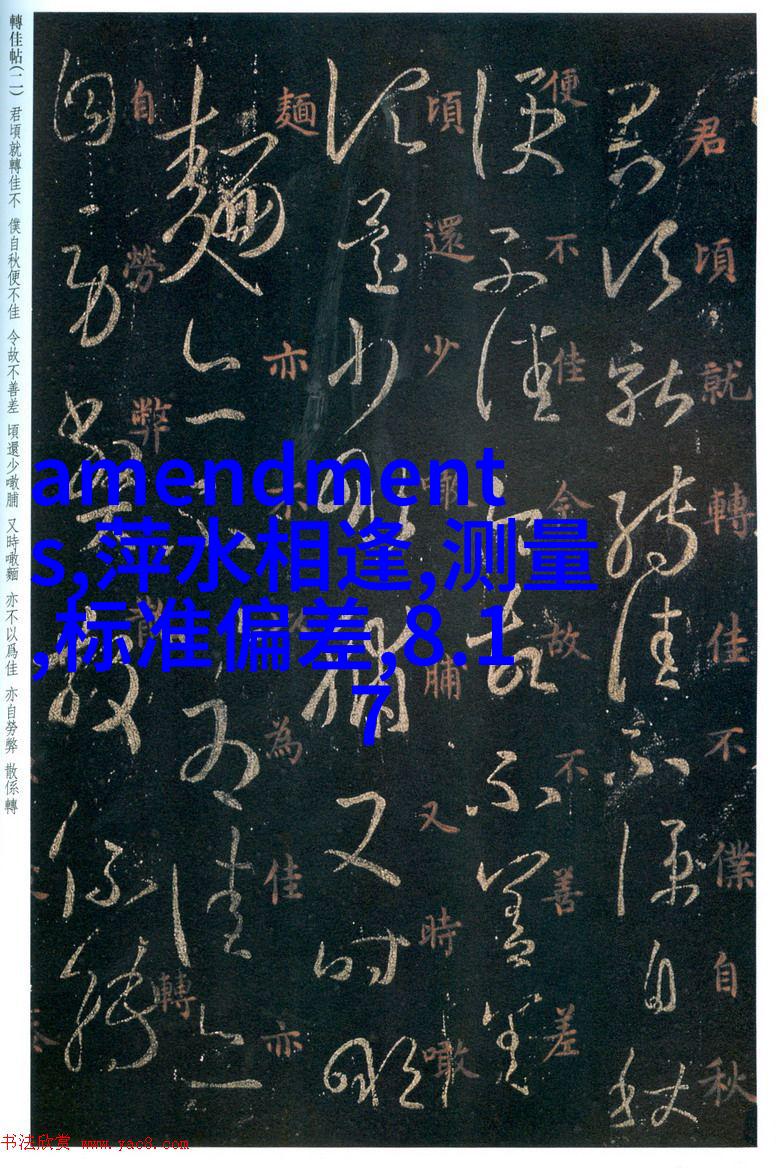 轉佳帖(二) 君頃就轉佳不 僕自秋便不佳 令故不善差 頃還少噉脯 又時噉麵 亦不以爲佳 亦自勞弊 散係轉
君頃就轉佳不僕自秋
便不佳今故不善差
頃還少噉脯又時噉
麵亦不以為佳亦
自勞弊散係轉
amendment
s,萍水相逢,测量
,标准偏差,8.1
7
书法欣赏 www.yac8.com